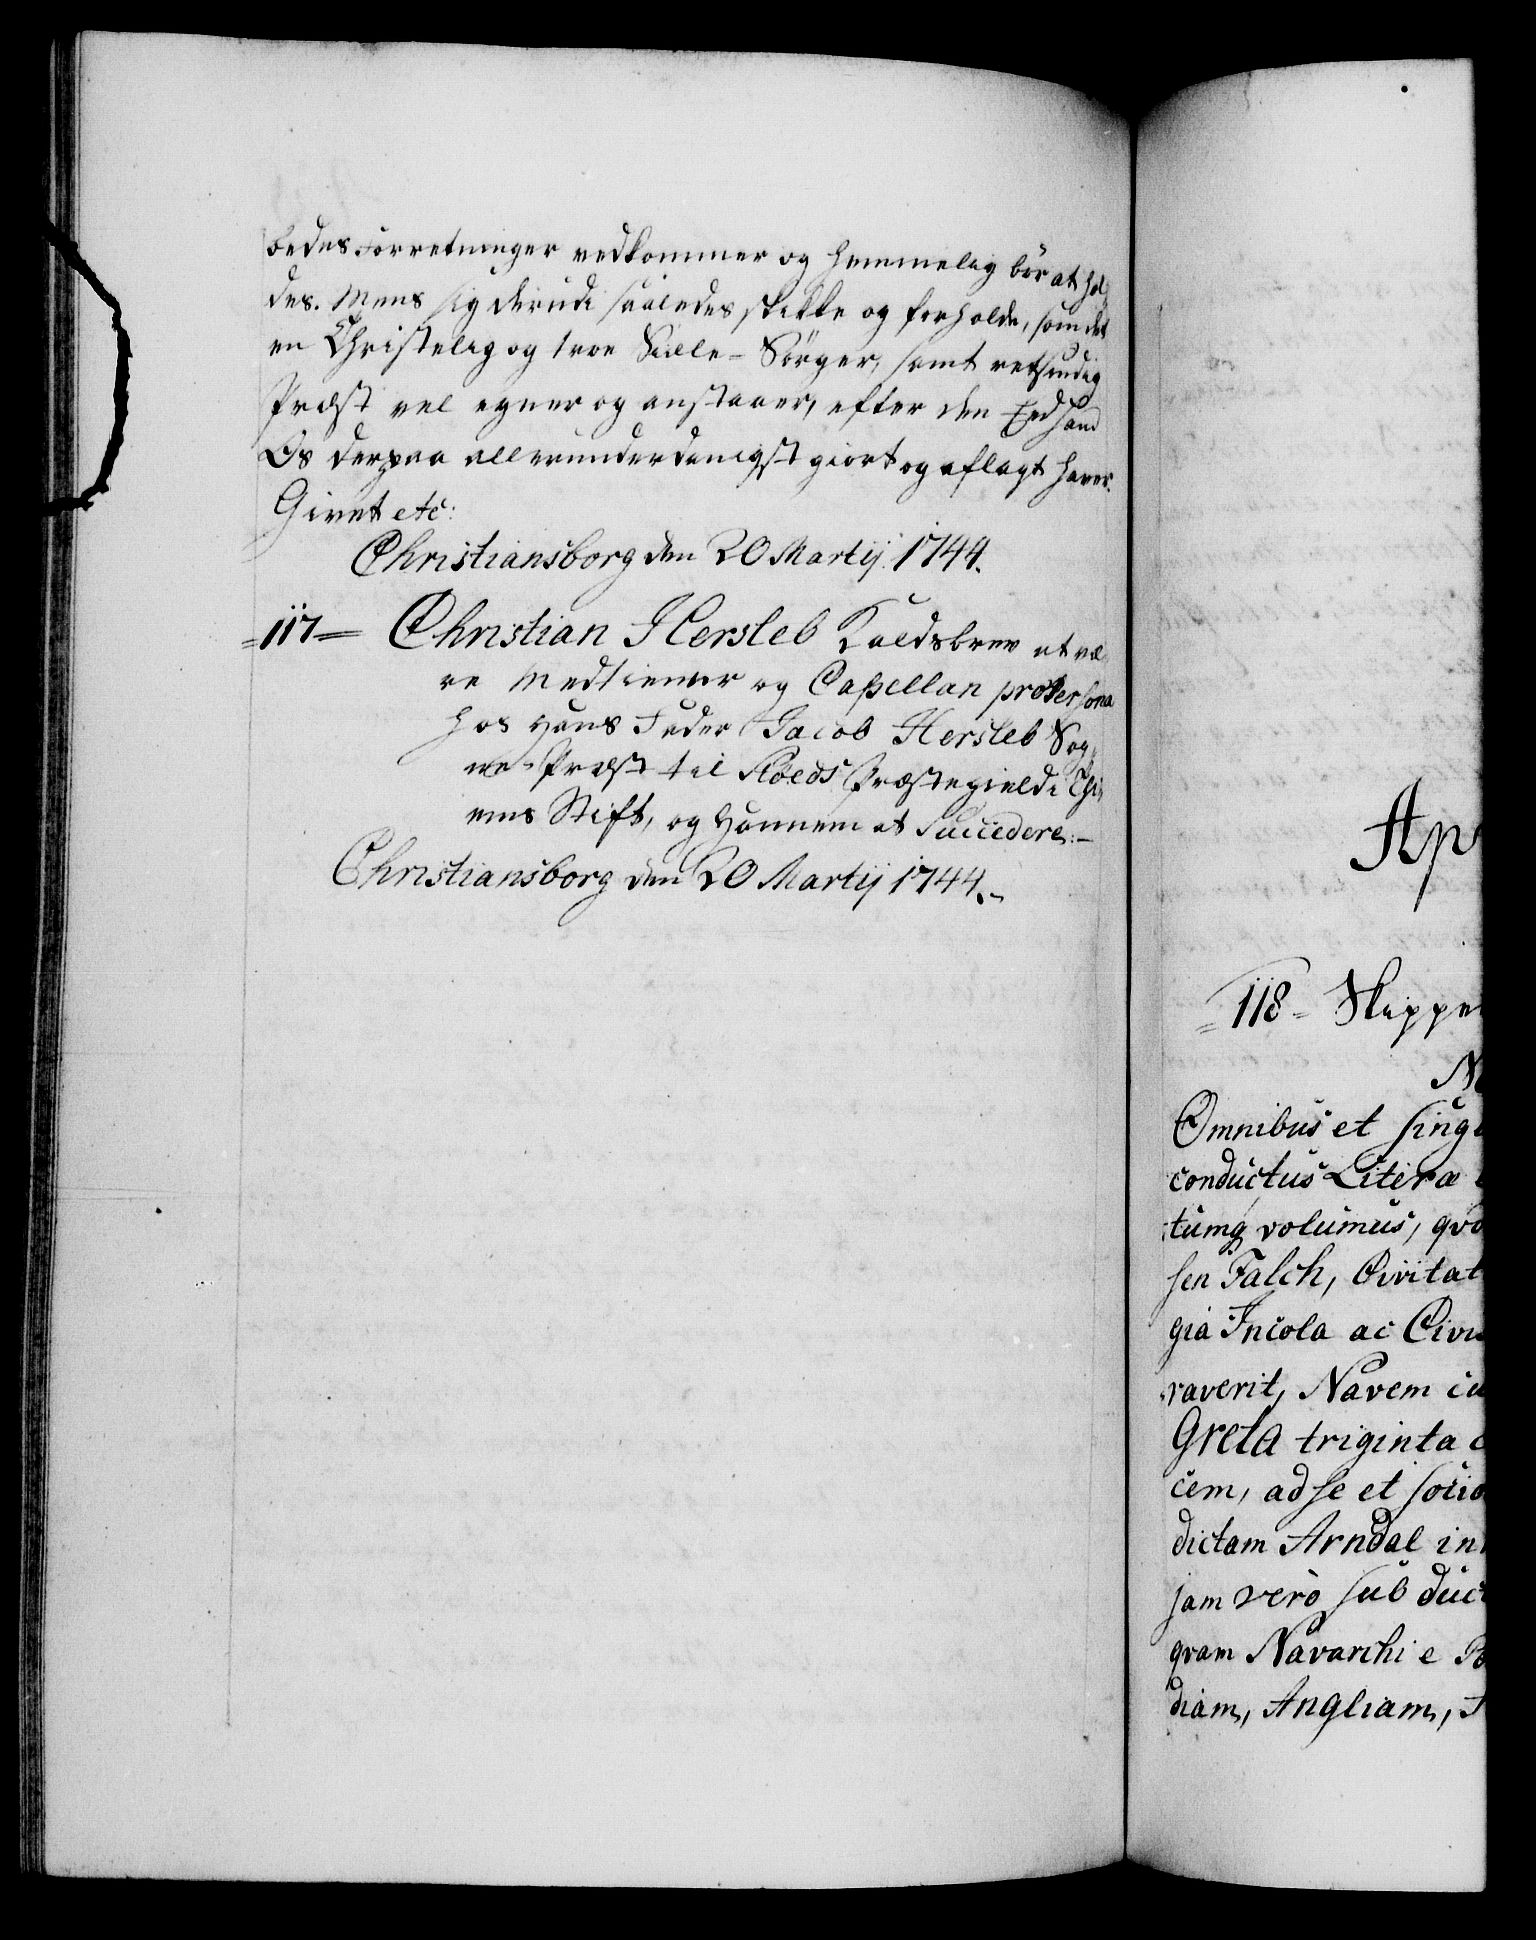 bedes Forretninger vedkommer og hemmelig bör at hol,
des. Mens sig derudi saaledes skikke og forholde, som det
en Christelig og troe Siæle-Sörger, samt retsindig
Præst vel egner og anstaaer, efter den Eed hand
Os derpaa allerunderdanigst giort og aflagt haver.
Givet etc:
Christiansborg den 20 Martij 1744.
=117= Christian Hersleb Kaldsbrev at væ,
re Medtiener og Capellan pro Persona
hos Hans Fader Jacob Hersleb Sog,
ne-Præst til Præstegield i Thi,
ems Stift, og Hannem at Succedere:-
Christiansborg den 20 Martij 1744.-
Ap
=118- Skippe
Omnibus et sing
conductus Literæ
tumq volumus, qvo
sen Falch, Civitat
gia Incola ac Civi
raverit, Navem cu
Greta triginta
cem, ad se et socio
dictam Arndal in
jam verò sub duc
qvam Navarchi e
diam, Angliam,